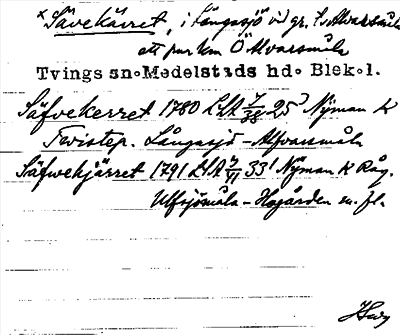 *Sävekärret, i Långasjö vid gr. t. Alvarsmåla
ett par km Ö Alvarsmåla
Tvings sn. Medelstads hd. Blek.l.
Säfvekerret 1780 LSA 7/38 25 Nyman K
Tvistep. Långasjö - Alfvarsmåla
Säfwekjärret 1791 LSA 7/VI 33 Nyman K Råg.
Ulfsjömåla - Hagården m. fl.